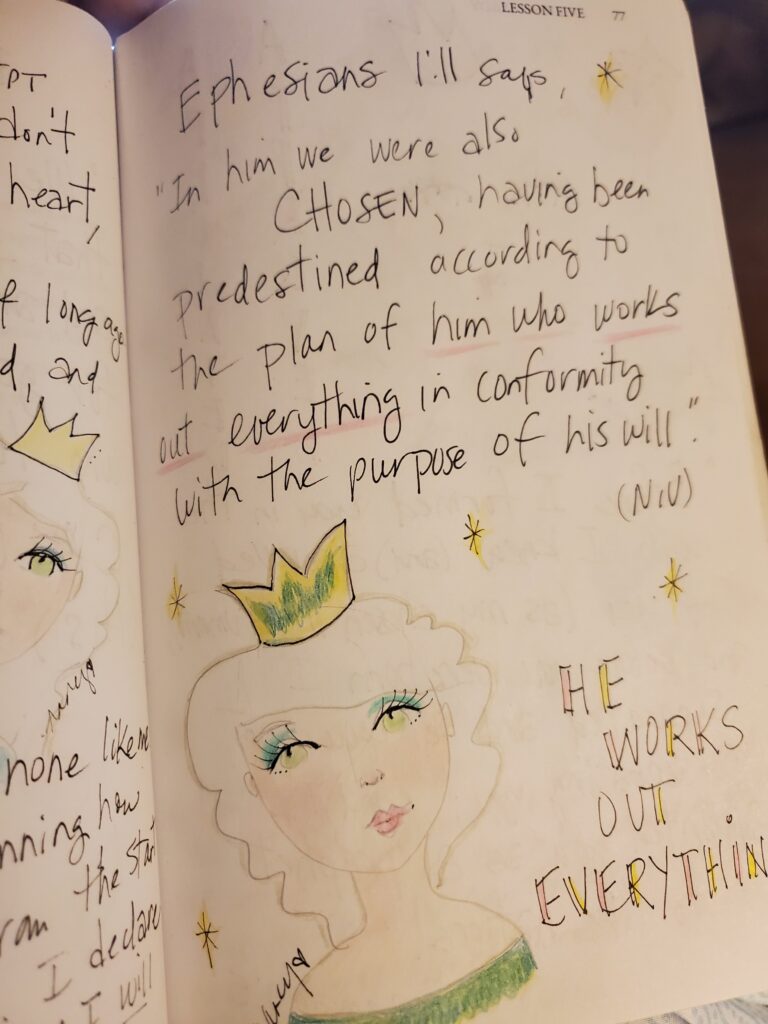 TPT
don't
heart,
long ago
d, and
none like me
nning how
the start
I declare
I will
LESSON FIVE 77
Ephesians 1:11 says,
"In him we were also
CHOSEN, having been
predestined according to
the plan of him who works
out everything in conformity
with the purpose of his will."
(NIV)
HE
WORKS
OUT
EVERYTHIN